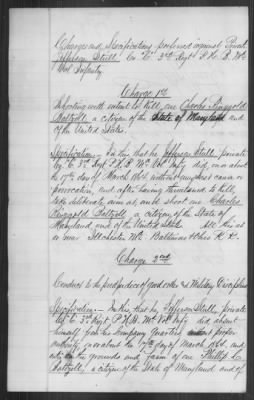 Charges and Specifications preferred against Private
Jefferson Strill Co "C" 3rd Regt P. H. B. Md
Vol Infantry
Charge 1st
Shooting with intent to kill, one Charles Ringgold
Baltzell a citizen of the State of Maryland and
of the United States.
Specification - In this that he Jefferson Strill, private
Co C 3rd Regt P. H. B. Md Vol Infy did, on or about
the 17th day of March 1864, without sufficient cause or
provocation, and after having threatened to kill,
take deliberate aim at, and shoot one Charles
Ringgold Baltzell, a citizen of the State of
Maryland and of the United States. All this at
or near Ilchester Md. Baltimore & Ohio R. R.
Charge 2nd
Conduct to the prejudice of good order & Military Discipline
Specification - In this that he Jefferson Strill, private
Co C 3rd Regt P. H. B. Md Vol Infy did, absent
himself from his Company Quarters without proper
authority, on or about the 17th day of March 1864, and
the grounds and farm of one Phillip C.
Baltzell, a citizen of the State of Maryland and of